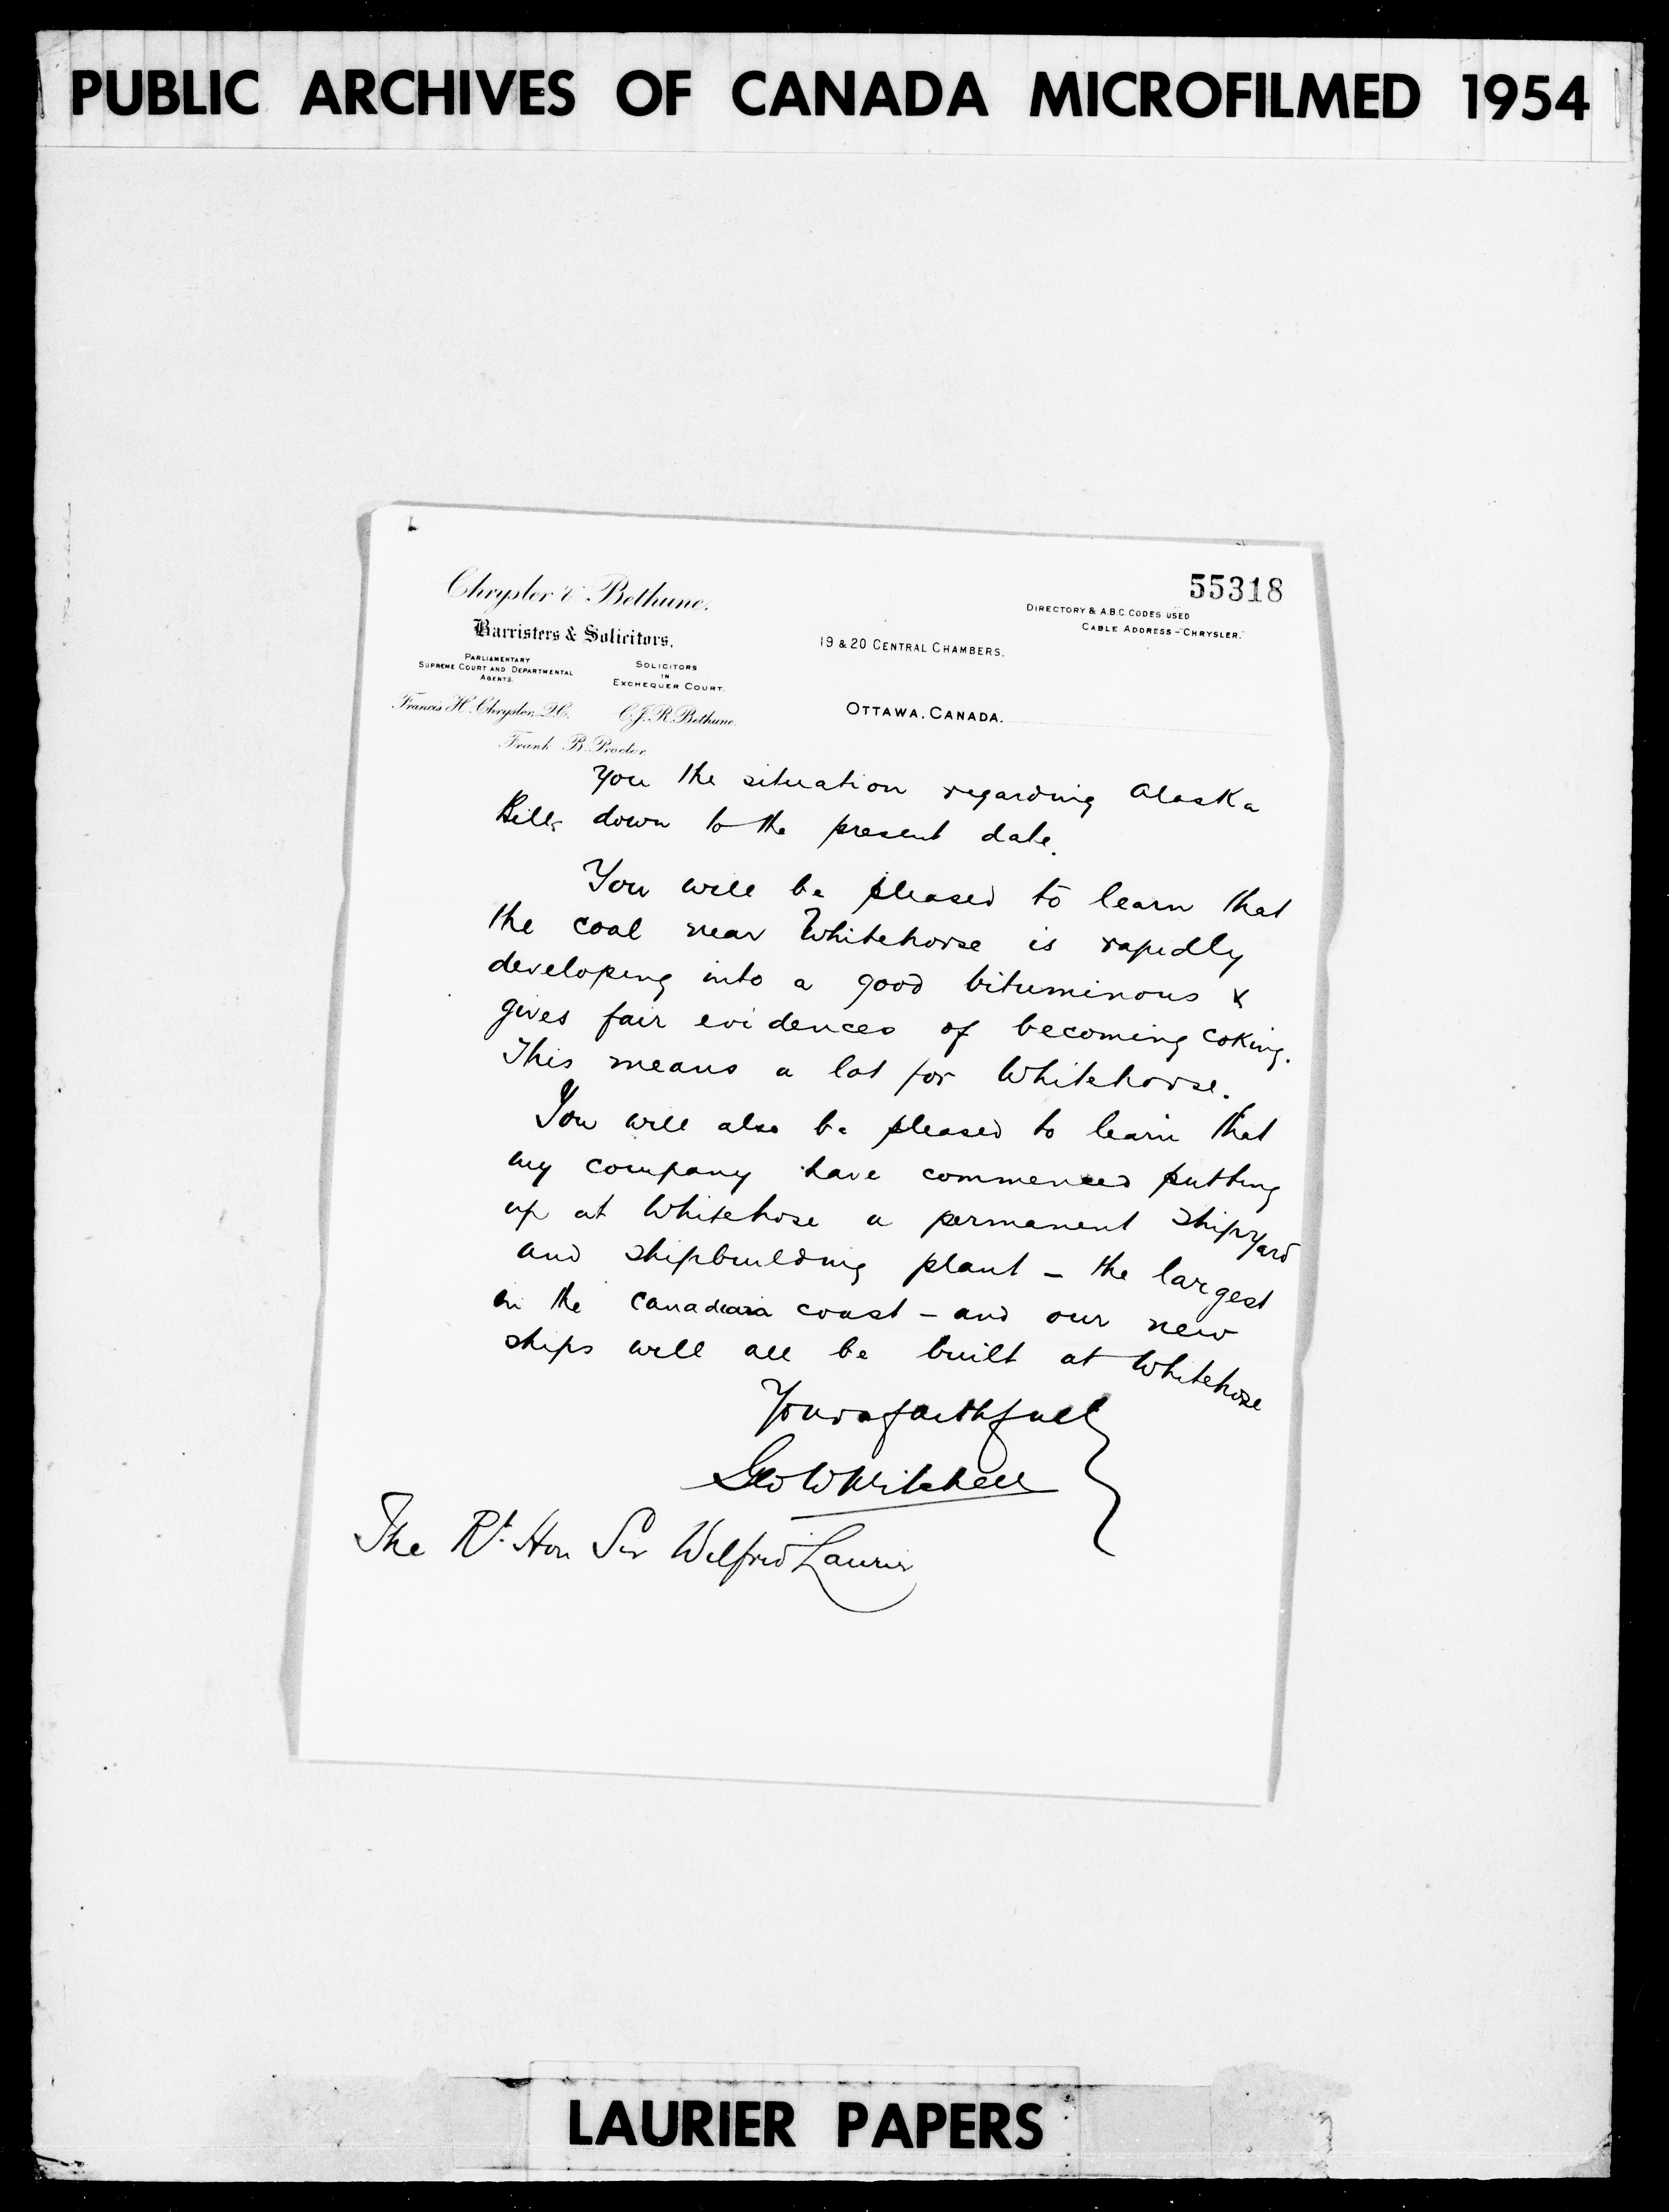 PUBLIC ARCHIVES OF CANADA MICROFILMED 1954
55318
Chrysler & Bethune.
Barristers & Solicitors.
PARLIAMENTARY
SUPREME COURT AND DEPARTMENTAL
AGENTS.
SOLICITORS
IN
EXCHEQUER COURT.
Francis H. Chrysler, Q.C. C.J.R. Bethune.
Frank B. Proctor.
19 & 20 CENTRAL CHAMBERS.
DIRECTORY & A.B.C. CODES USED
CABLE ADDRESS-"CHRYSLER."
OTTAWA, CANADA.
You the situation regarding Alaska
Bills down to the present date.
You will be pleased to learn that
the coal near Whitehorse is rapidly
developing into a good bituminous &
gives fair evidences of becoming coking.
This means a lot for Whitehorse.
You will also be pleased to learn that
my company have commenced putting
up at Whitehorse a permanent Shipyard
and shipbuilding plant - the largest
on the Canadian coast - and our new
ships will all be built at Whitehorse
Yours faithfully
Geo W Mitchell
The Rt. Hon Sir Wilfrid Laurier
LAURIER PAPERS